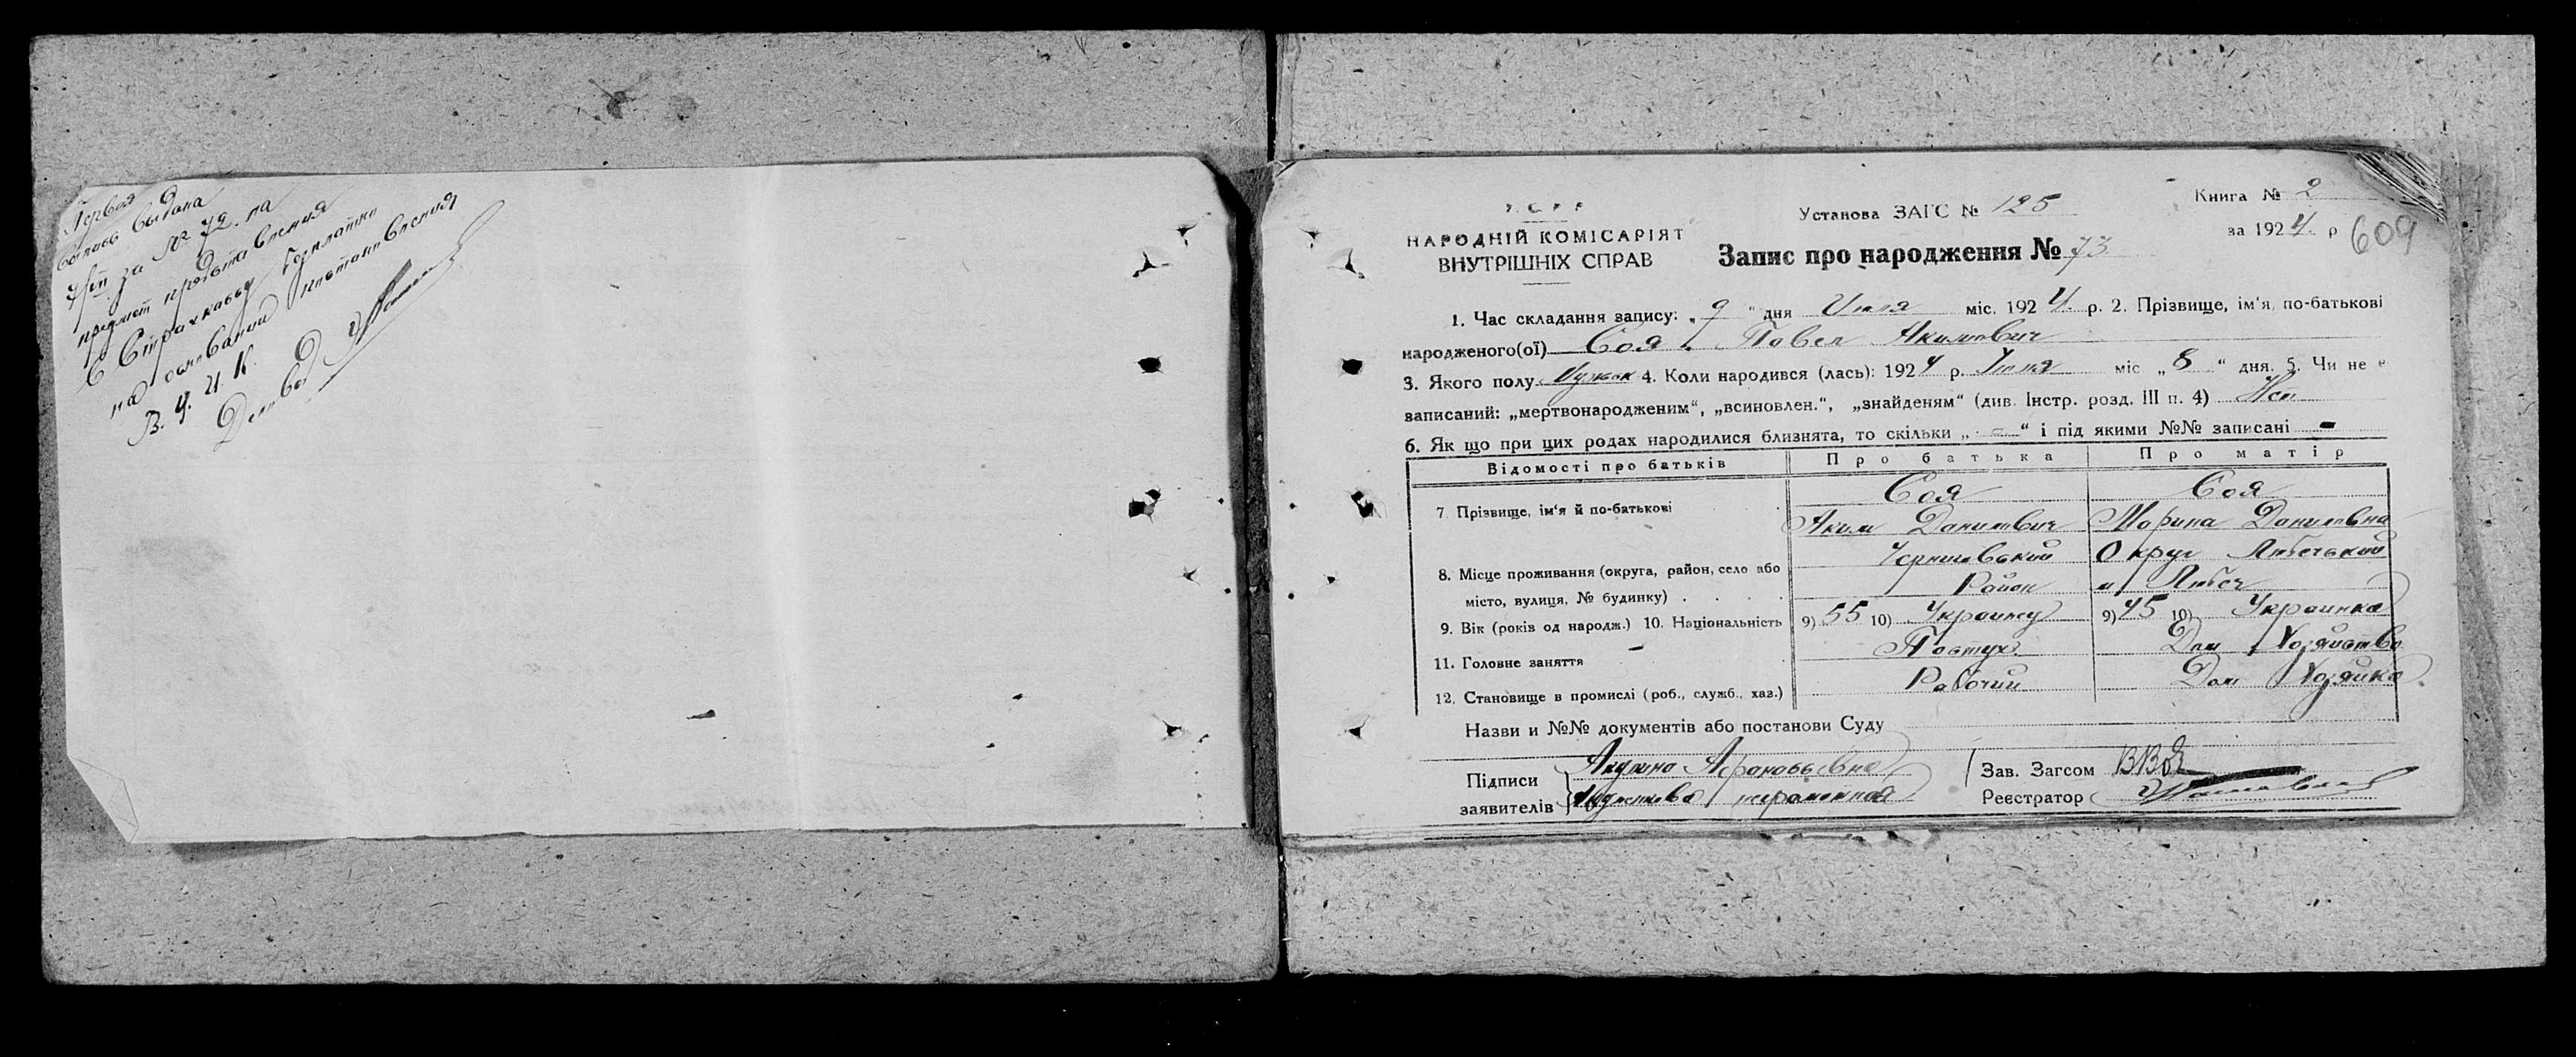 Первая
выпись выдана
7/VII за № 72. на
предмет представления
в Страхкассу бесплатно
на основании постановления
В. Ц. И. К.
У. С. Р. Р.
НАРОДНІЙ КОМІСАРІЯТ
ВНУТРІШНІХ СПРАВ
Установа ЗАГС № 125
Книга № 2
за 1924. р
609
Запис про народження № 73
1. Час складання запису: „9" дня Июля міс. 1924. р. 2. Прізвище, ім'я, по-батькові
народженого(ої) Соя. Павел Акимович
3. Якого полу Мужск 4. Коли народився (лась): 1924 р. Июля міс „8" дня. 5. Чи не є
записаний: „мертвонародженим", „всиновлен.", „знайденям" (див. Інстр. розд. III п. 4) Нет
6. Як що при цих родах народилися близнята, то скільки „-" і під якими №№ записані -
Відомості про батьків Про батька Про матір
7 Прізвище, ім'я й по-батькові Соя Соя
Аким Данилович Марина Даниловна
8. Місце проживання (округа, район, село або Черниговский Округ Любечьский
місто, вулиця, № будинку) . . . . Район м Любеч
9. Вік (років од народж.) 10. Національність 9) 55 10) Украинец 9) 45 10) Украинка
11. Головне заняття Пастух Дом Хозяйство
12. Становище в промислі (роб., служб., хаз.) Рабочий Дом Хозяйка
Назви и №№ документів або постанови Суду
Підписи Акулина
заявителів неграмотная
Зав. Загсом
Реєстратор